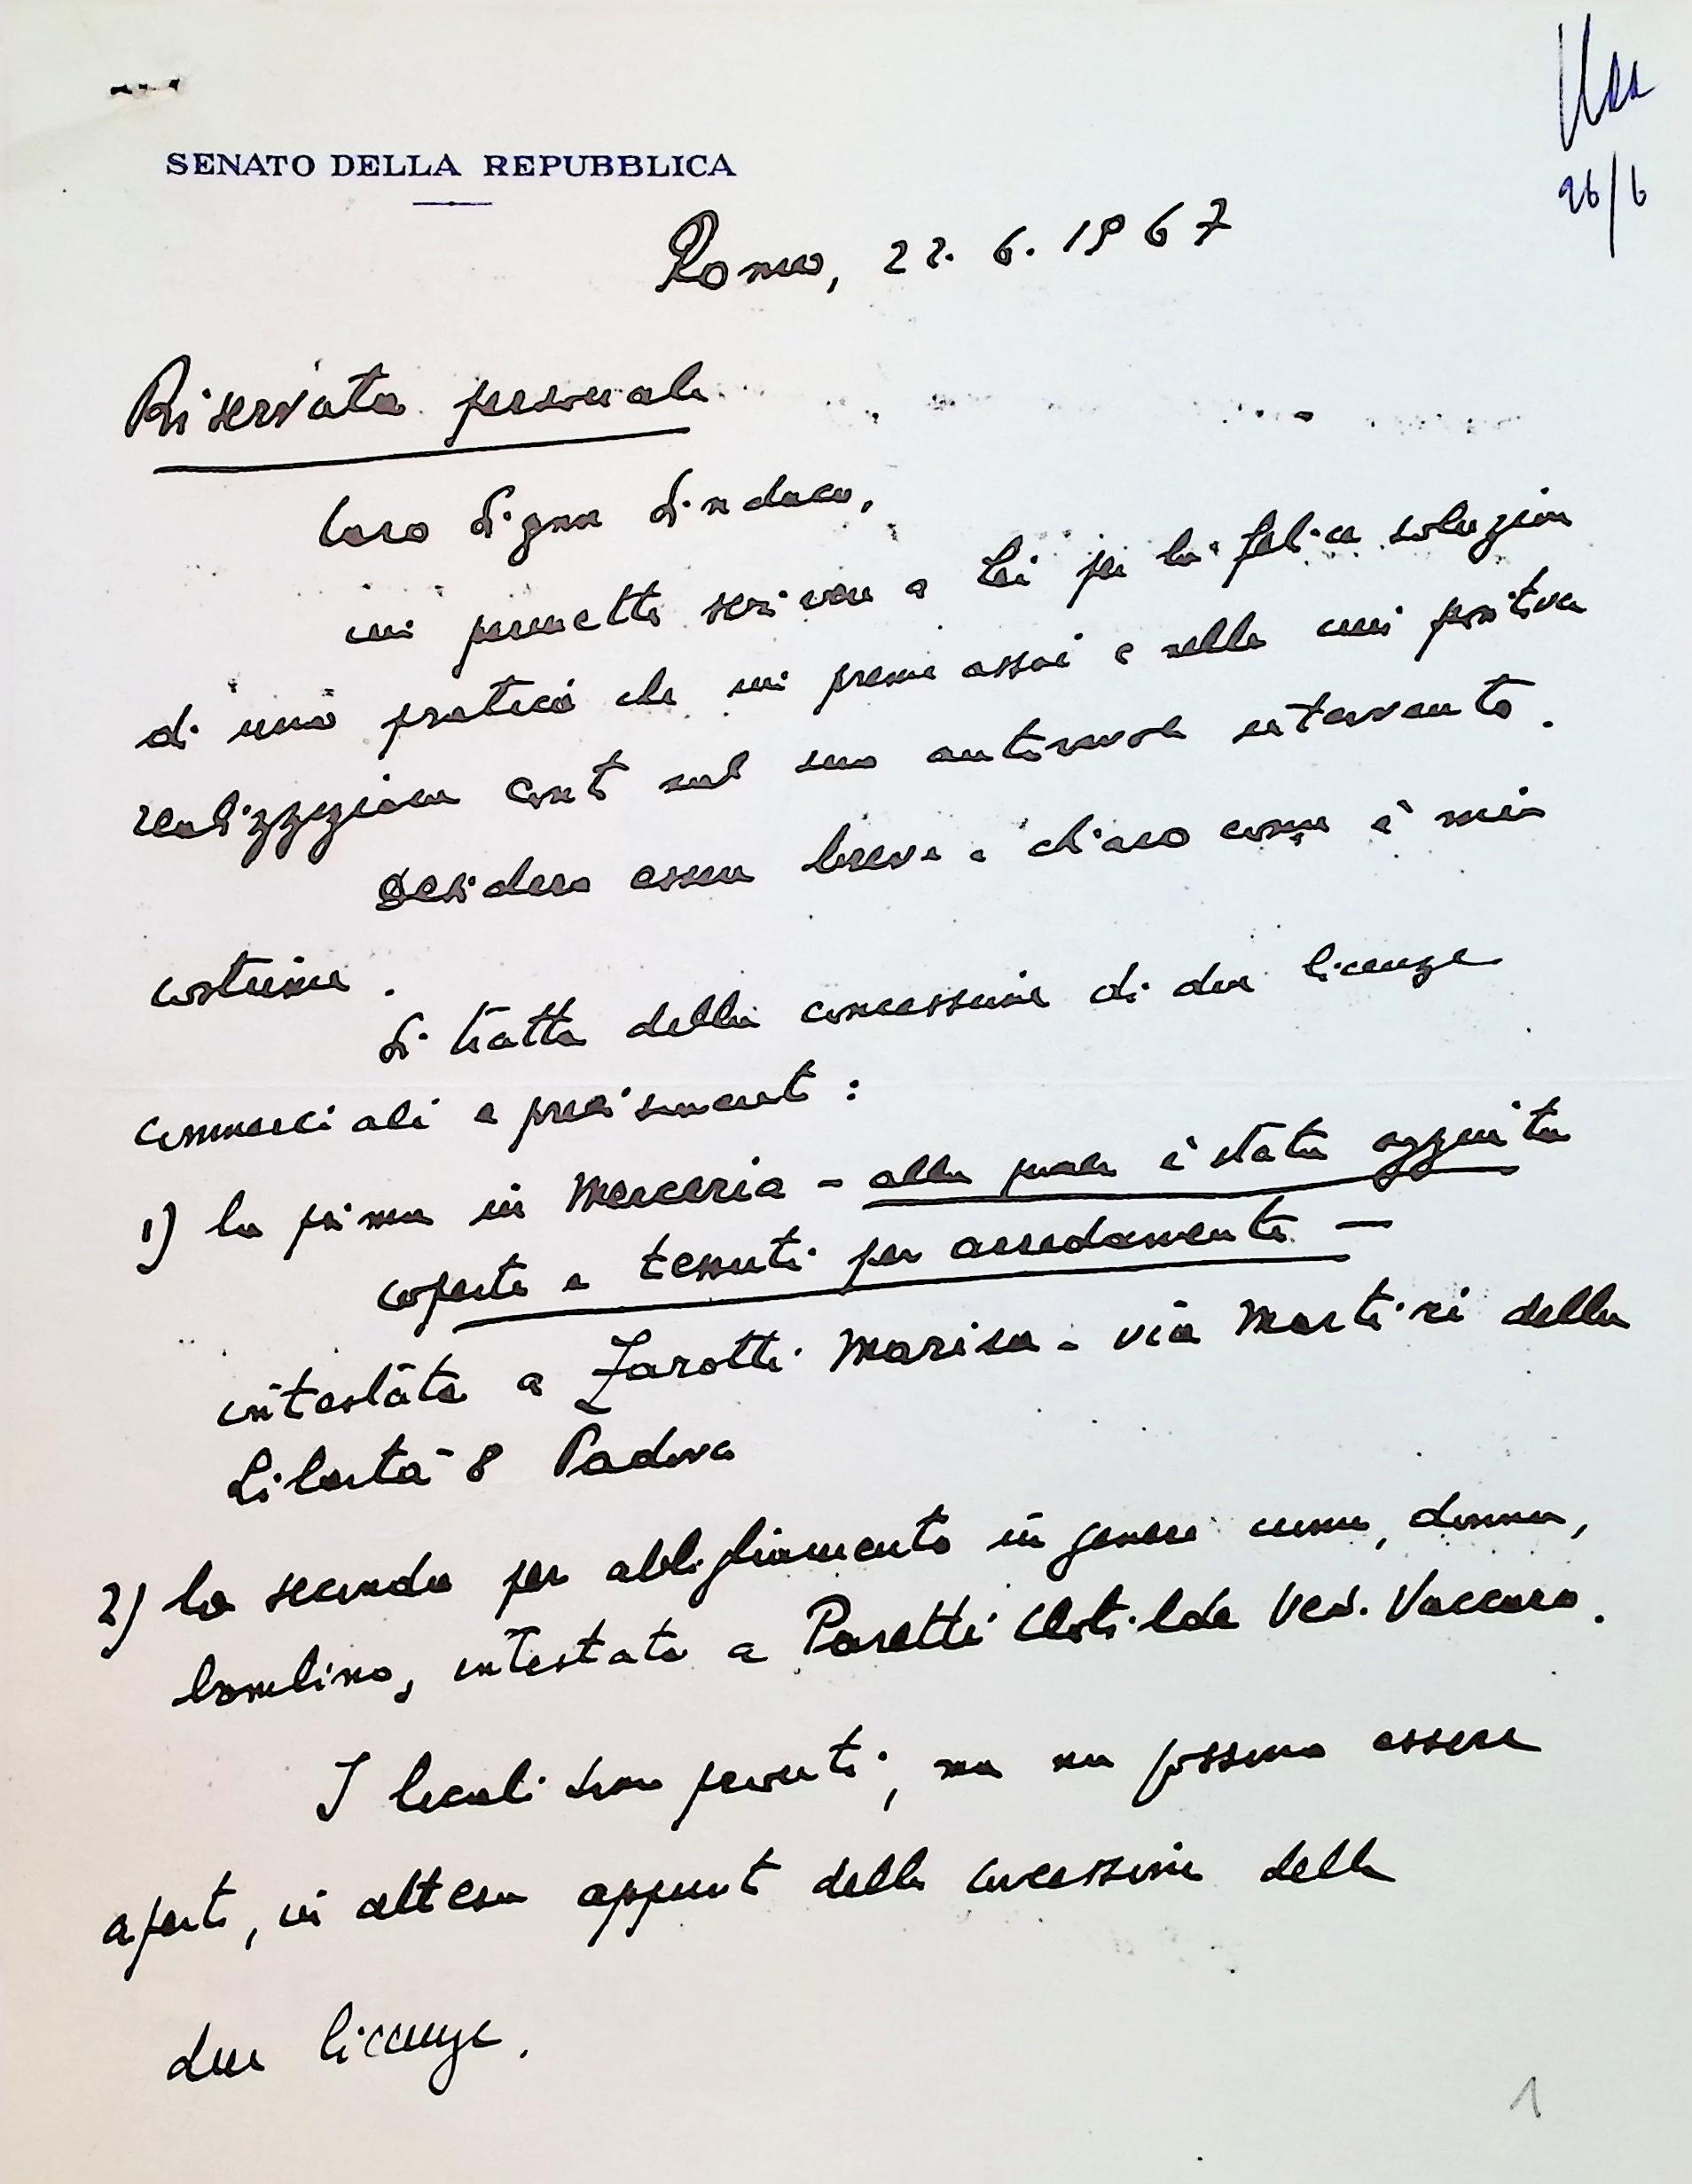 SENATO DELLA REPUBBLICA
26/6
Roma, 22. 6. 1967
Riservata personale
Caro Signor Sindaco,
mi permetto scrivere a Lei per la felice soluzione
di una pratica che mi preme assai e nella cui positiva
realizzazione conto sul suo autorevole intervento.
Desidero essere breve e chiaro come è mio
costume.
Si tratta della concessione di due licenze
commerciali e precisamente:
1) la prima in Merceria - alla quale è stata aggiunta
coperte e tessuti per arredamento -
intestata a Zarotti Marisa - via Martiri della
Libertà 8 Padova
2) la seconda per abbigliamento in genere uomo, donna,
bambino, intestata a Paretti Clotilde Ved. Vaccaro.
I locali sono pronti, ma non possono essere
aperti, in attesa appunto della concessione delle
due licenze.
1